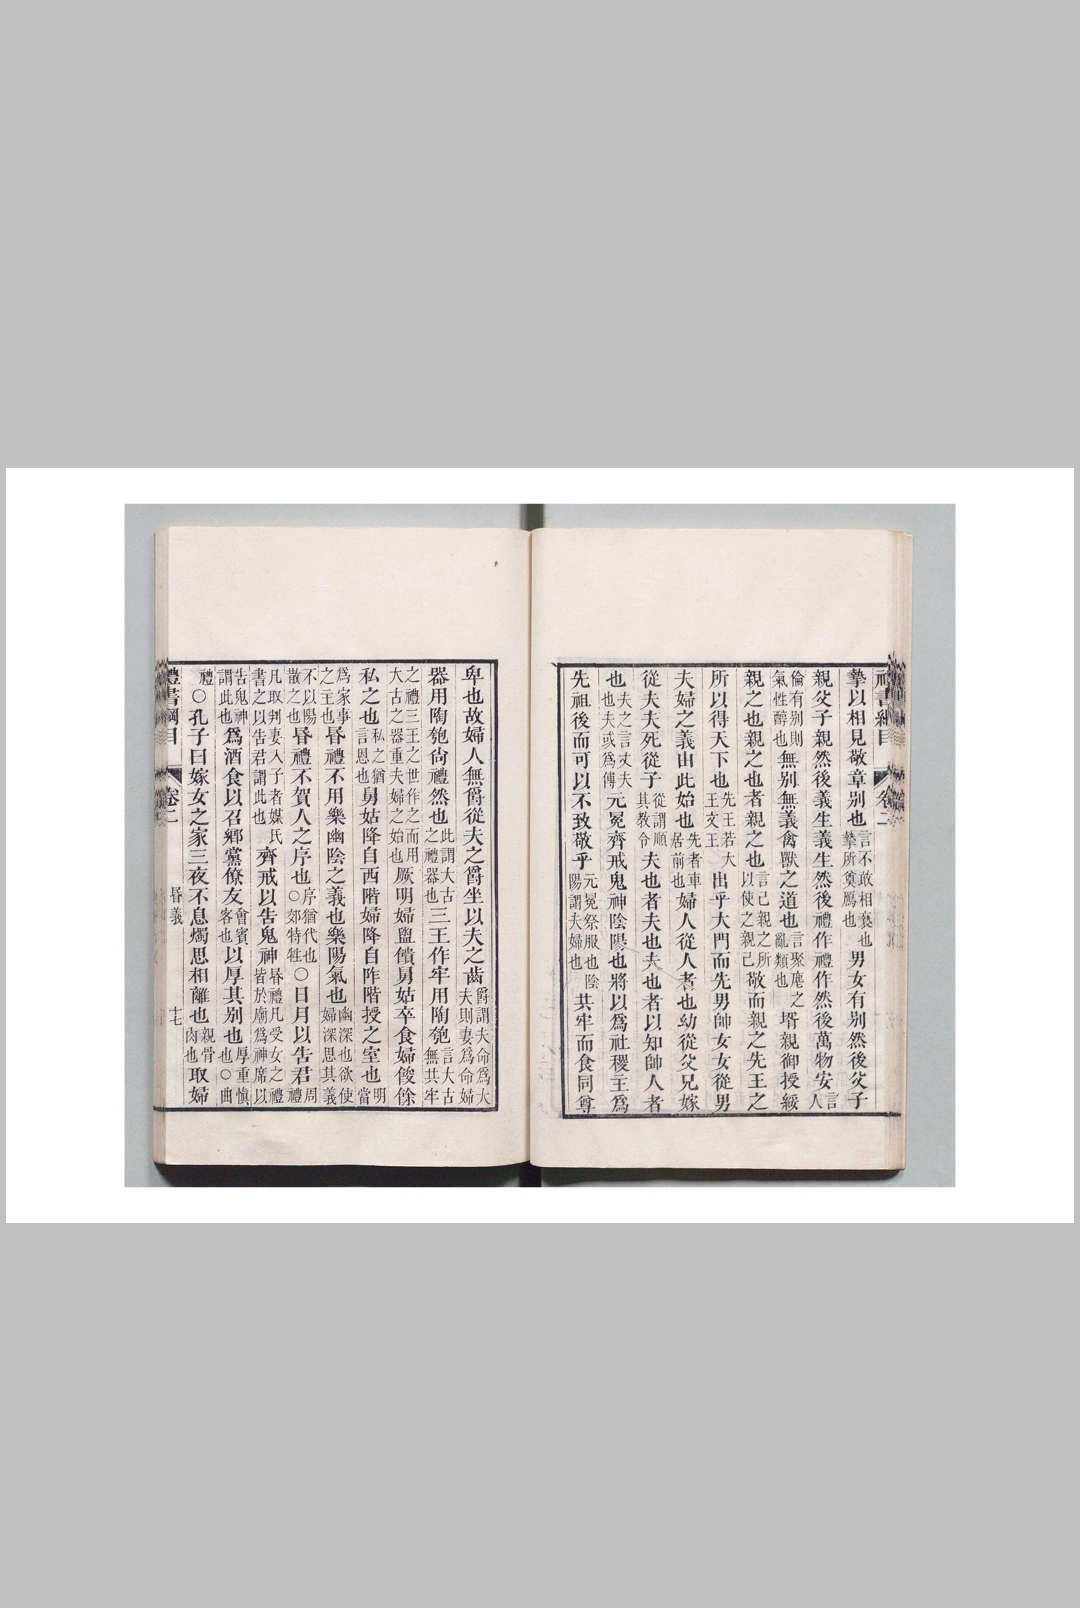 禮書綱目 卷二
摯以相見敬章別也言不敢相褻也摯所奠鴈也男女有別然後父子
親父子親然後義生義生然後禮作禮作然後萬物安言人
倫有別則氣性醇也無別無義禽獸之道也言聚麀之亂類也壻親御授綏
親之也親之也者親之也言己親之所以使之親己敬而親之先王之
所以得天下也先王若大王文王出乎大門而先男帥女女從男
夫婦之義由此始也先者車居前也婦人從人者也幼從父兄嫁
從夫夫死從子從謂順其教令夫也者夫也夫也者以知帥人者
也夫之言丈夫也夫或爲傅元冕齊戒鬼神陰陽也將以爲社稷主爲
先祖後而可以不致敬乎元冕祭服也陰陽謂夫婦也共牢而食同尊
卑也故婦人無爵從夫之爵坐以夫之齒爵謂夫命爲大夫則妻爲命婦
器用陶匏尚禮然也此謂大古之禮器也三王作牢用陶匏言大古無共牢
之禮三王之世作之而用大古之器重夫婦之始也厥明婦盥饋舅姑卒食婦餕餘
私之也私之猶言恩也舅姑降自西階婦降自阼階授之室也明當
爲家事之主也昏禮不用樂幽陰之義也樂陽氣也幽深也欲使婦深思其義
不以陽散之也昏禮不賀人之序也序猶代也○郊特牲○日月以告君周禮
凡取判妻入子者媒氏書之以告君謂此也齊戒以告鬼神昏禮凡受女之禮皆於廟爲神席以
告鬼神謂此也爲酒食以召鄉黨僚友會賓客也以厚其別也厚重慎也○曲
禮○孔子曰嫁女之家三夜不息燭思相離也親骨肉也取婦
禮書綱目 卷二 昏義 十七